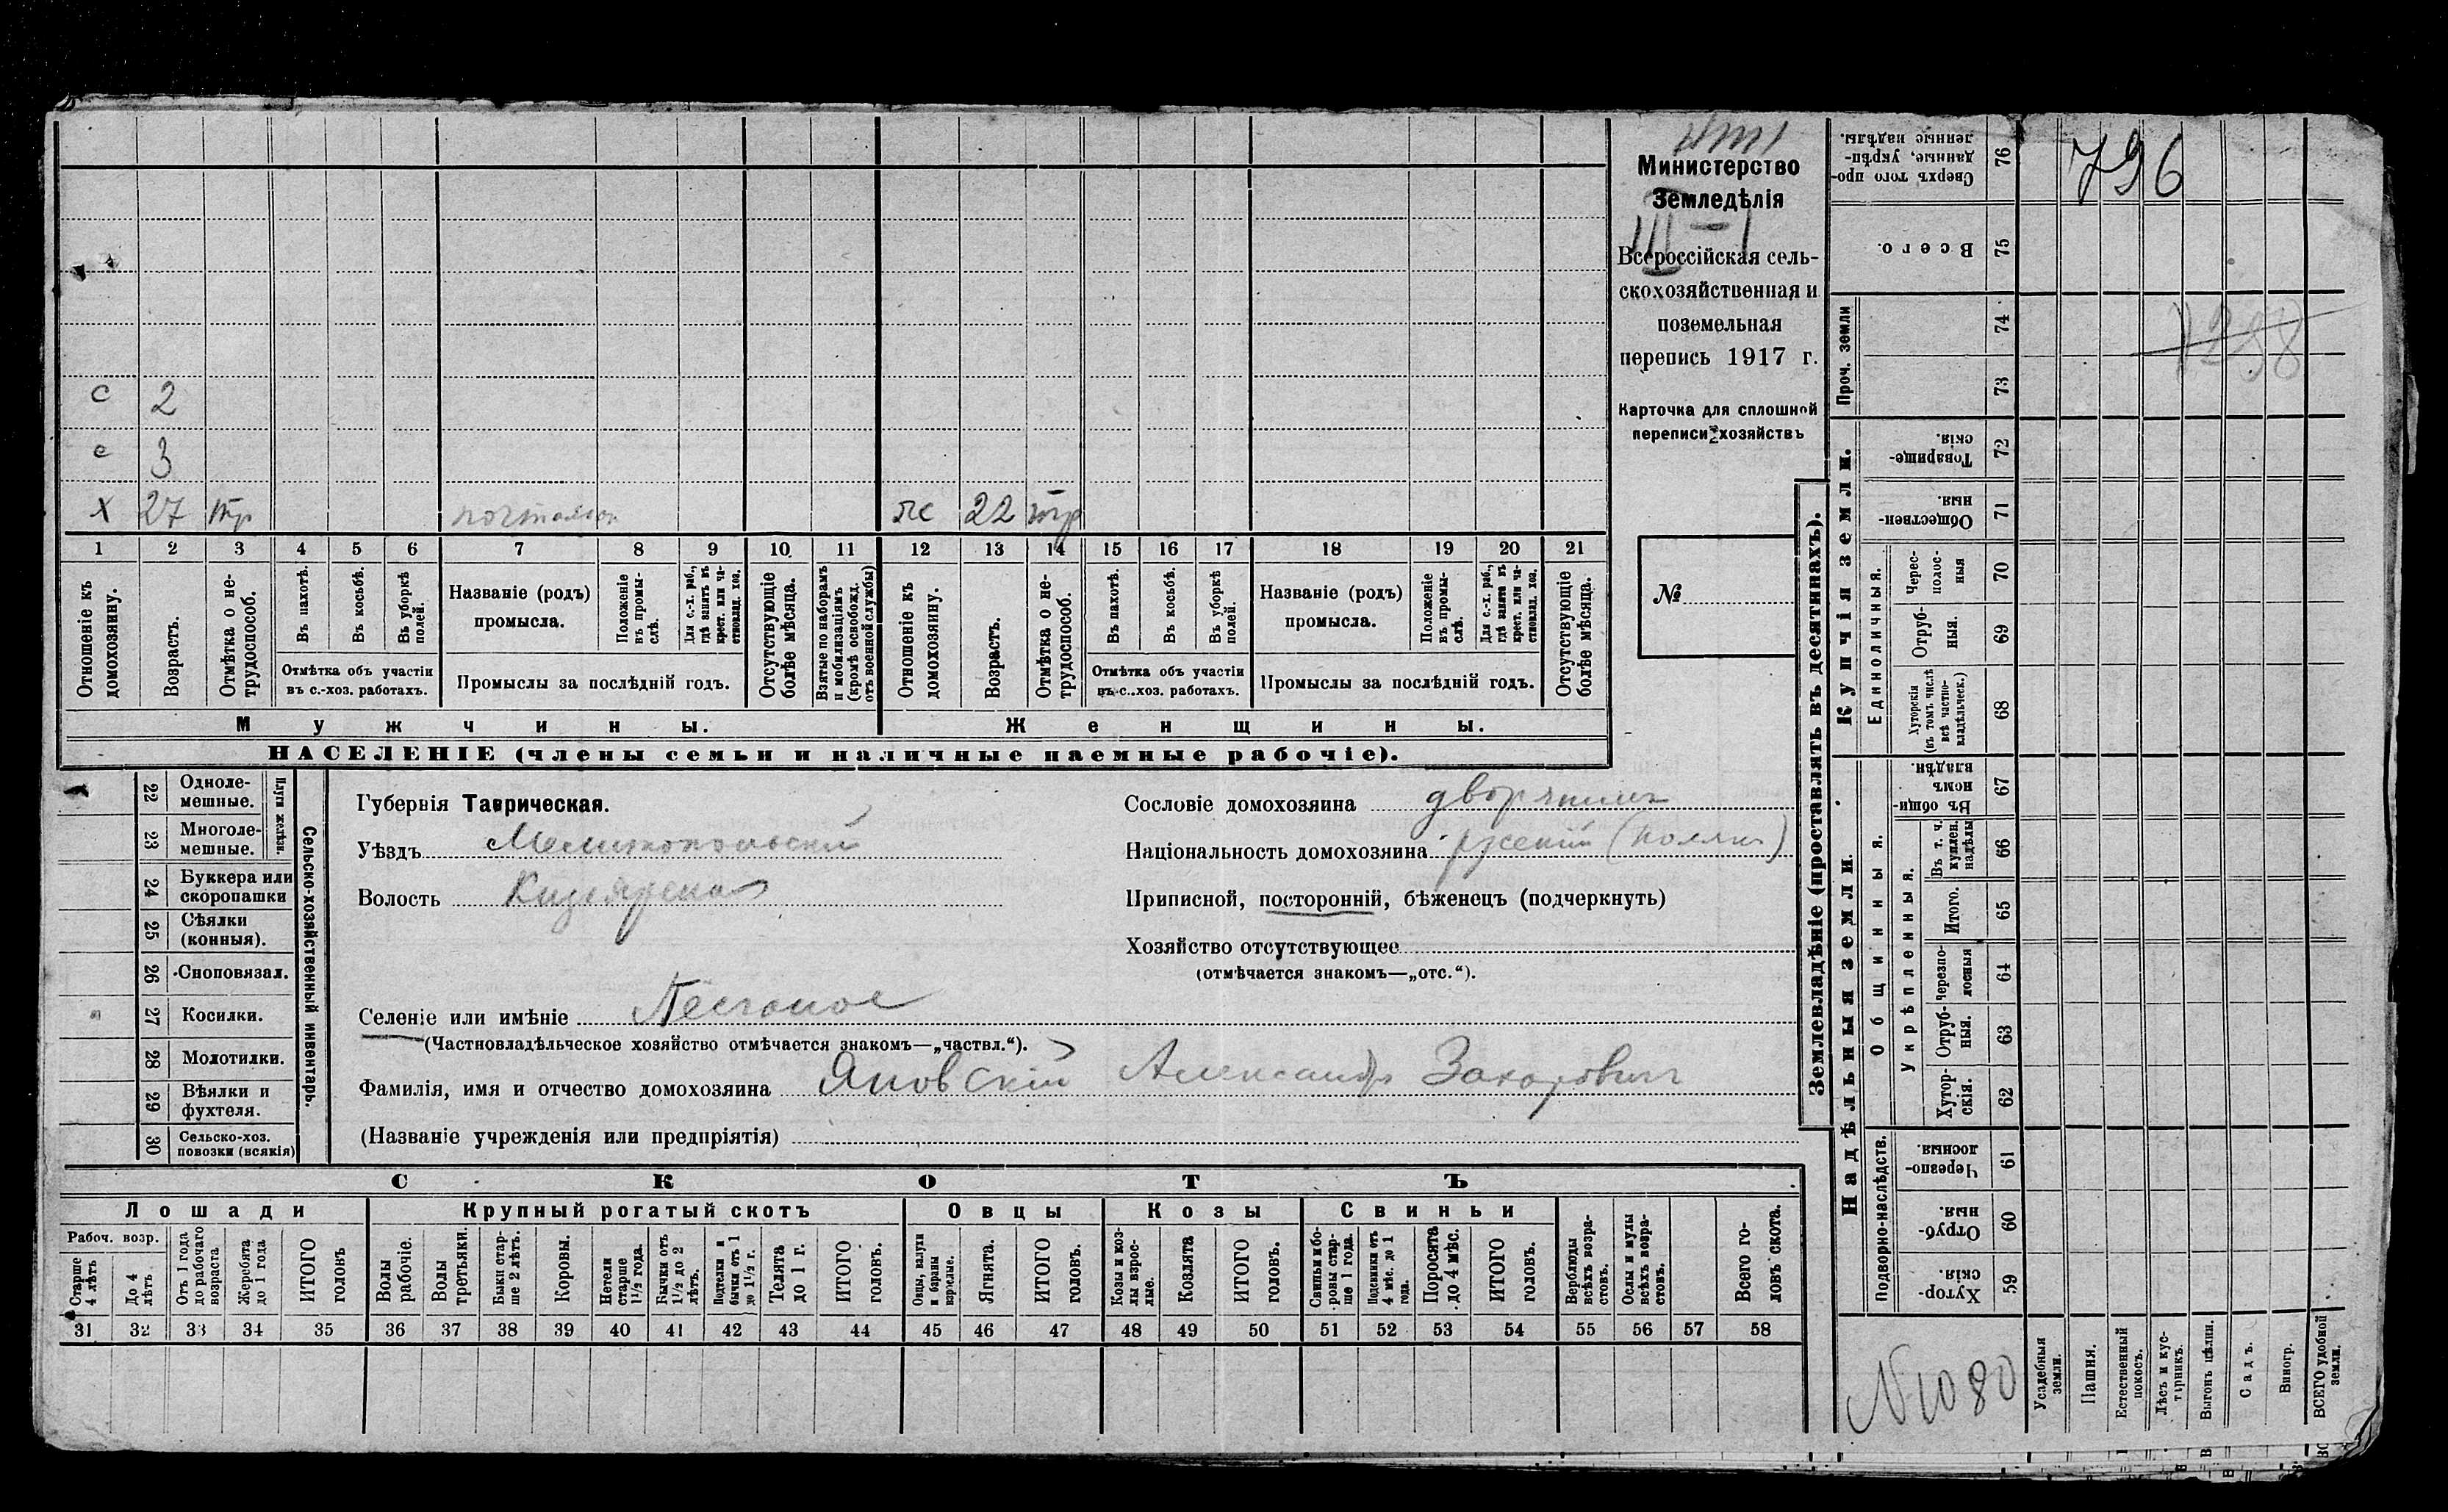 Министерство
Земледѣлія
III – 1
Всероссійская сель-
скохозяйственная и
поземельная
перепись 1917 г.
Карточка для сплошной
переписи хозяйствъ
№
с 2
с 3
х 27 тр
ж 22 тр
1 2 3 4 5 6 7 8 9 10 11 12 13 14 15 16 17 18 19 20 21
Отношеніе къ домохозяину.
Возрастъ.
Отмѣтка о не-трудоспособ.
Въ пахотѣ.
Въ косьбѣ.
Въ уборкѣ полей.
Отмѣтка объ участіи
въ с.-хоз. работахъ.
Названіе (родъ)
промысла.
Положеніе въ промы-слѣ.
Для с.-х. раб., гдѣ занятъ въ крест. или ча-стновлад. хоз.
Промыслы за послѣдній годъ.
Отсутствующіе болѣе мѣсяца.
Взятые по наборамъ и мобилизаціямъ (кромѣ освобожд. отъ военной службы)
Отношеніе къ домохозяину.
Возрастъ.
Отмѣтка о не-трудоспособ.
Въ пахотѣ.
Въ косьбѣ.
Въ уборкѣ полей.
Отмѣтка объ участіи
въ с.-хоз. работахъ.
Названіе (родъ)
промысла.
Положеніе въ промы-слѣ.
Для с.-х. раб., гдѣ занята въ крест. или ча-стновлад. хоз.
Промыслы за послѣдній годъ.
Отсутствующіе болѣе мѣсяца.
Мужчины.
Женщины.
НАСЕЛЕНІЕ (члены семьи и наличные наемные рабочіе).
22 Одноле-мешные.
23 Многоле-мешные.
Плуги желѣзн.
24 Буккера или скоропашки
25 Сѣялки (конныя).
26 Сноповязал.
27 Косилки.
28 Молотилки.
29 Вѣялки и фухтеля.
30 Сельско-хоз. повозки (всякія)
Сельско-хозяйственный инвентарь.
Губернія Таврическая.
Уѣздъ Мелитопольскій
Волость Кизіярская
Сословіе домохозяина дворянинъ
Національность домохозяина русскій (полякъ)
Приписной, посторонній, бѣженецъ (подчеркнуть)
Хозяйство отсутствующее
(отмѣчается знакомъ—„отс.“).
Селеніе или имѣніе Песчаное
(Частновладѣльческое хозяйство отмѣчается знакомъ—„частвл.“).
Фамилія, имя и отчество домохозяина Яновскій Александръ Захаровичъ
(Названіе учрежденія или предпріятія)
СКОТЪ
Лошади
Крупный рогатый скотъ
Овцы
Козы
Свиньи
Рабоч. возр.
Старше 4 лѣтъ
До 4 лѣтъ
Отъ 1 года до рабочаго возраста
Жеребята до 1 года
ИТОГО головъ
Волы рабочіе.
Волы третьяки.
Быки стар-ше 2 лѣтъ.
Коровы.
Нетели старше 1½ года.
Бычки отъ 1½ до 2 лѣтъ.
Подтелки и бычки отъ 1 до 1½ г.
Телята до 1 г.
ИТОГО головъ.
Овцы, валухи и бараны взрослые.
Ягнята.
ИТОГО головъ.
Козы и коз-лы взрос-лые.
Козлята
ИТОГО головъ.
Свиньи и бо-ровы стар-ше 1 года.
Подсвинки отъ 4 мѣс. до 1 года.
Поросята до 4 мѣс.
ИТОГО головъ.
Верблюды всѣхъ возра-стовъ.
Ослы и мулы всѣхъ возра-стовъ.
Всего го-ловъ скота.
31 32 33 34 35 36 37 38 39 40 41 42 43 44 45 46 47 48 49 50 51 52 53 54 55 56 57 58
Землевладѣніе (проставлять въ десятинахъ).
796
7298
Сверхъ того про-данные, укрѣп-ленные надѣлы. 76
Всего. 75
Проч. земли 74
73
Купчія земли.
Товарище-скія. 72
Обществен-ныя. 71
Единоличныя.
Черес-полос-ныя 70
Отруб-ныя. 69
Хуторскія (въ томъ числѣ всѣ частно-владѣльческ.) 68
Надѣльныя земли.
Общинныя.
Въ общи-номъ владѣн. 67
Укрѣпленныя.
Въ т. ч. куплен. надѣлы 66
Итого. 65
Черезпо-лосныя 64
Отруб-ныя. 63
Хутор-скія. 62
Подворно-наслѣдств.
Черезпо-лосныя 61
Отруб-ныя. 60
Хутор-скія. 59
N 1080
Усадебныя земли.
Пашня.
Естественный покосъ.
Лѣсъ и кус-тарникъ.
Выгонъ цѣлин.
Садъ.
Виногр.
ВСЕГО удобной земли.